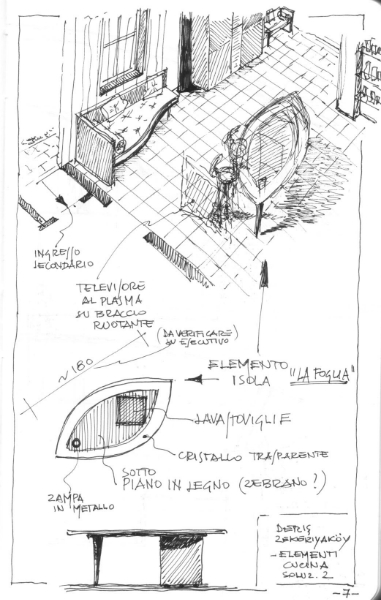 INGRESSO
SECONDARIO
TELEVISORE
AL PLASMA
SU BRACCIO
RUOTANTE
(DA VERIFICARE)
SU ESECUTIVO
~180
ELEMENTO
ISOLA "LA FOGLIA"
LAVASTOVIGLIE
CRISTALLO TRASPARENTE
SOTTO
PIANO IN LEGNO (ZEBRANO?)
ZAMPA
IN METALLO
ZEKERIYAKÖY
- ELEMENTI
CUCINA
SOLUZ. 2
-7-